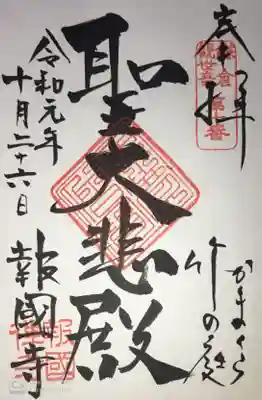 奉拝
第十番
かまくら
竹の庭
聖大悲殿
令和元年
十月二十六日
報國寺